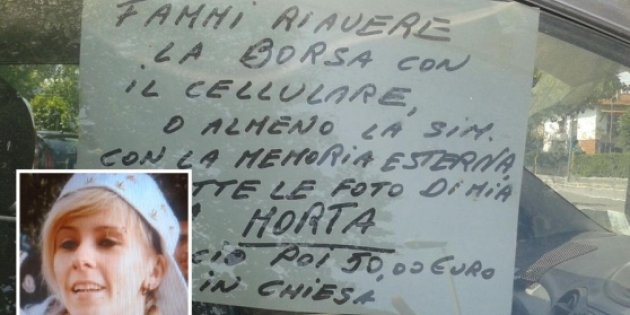 FAMMI RIAVERE
LA BORSA CON
IL CELLULARE,
O ALMENO LA SIM.
CON LA MEMORIA ESTERNA,
LE FOTO DI MIA
MORTA
POI 50,00 EURO
IN CHIESA